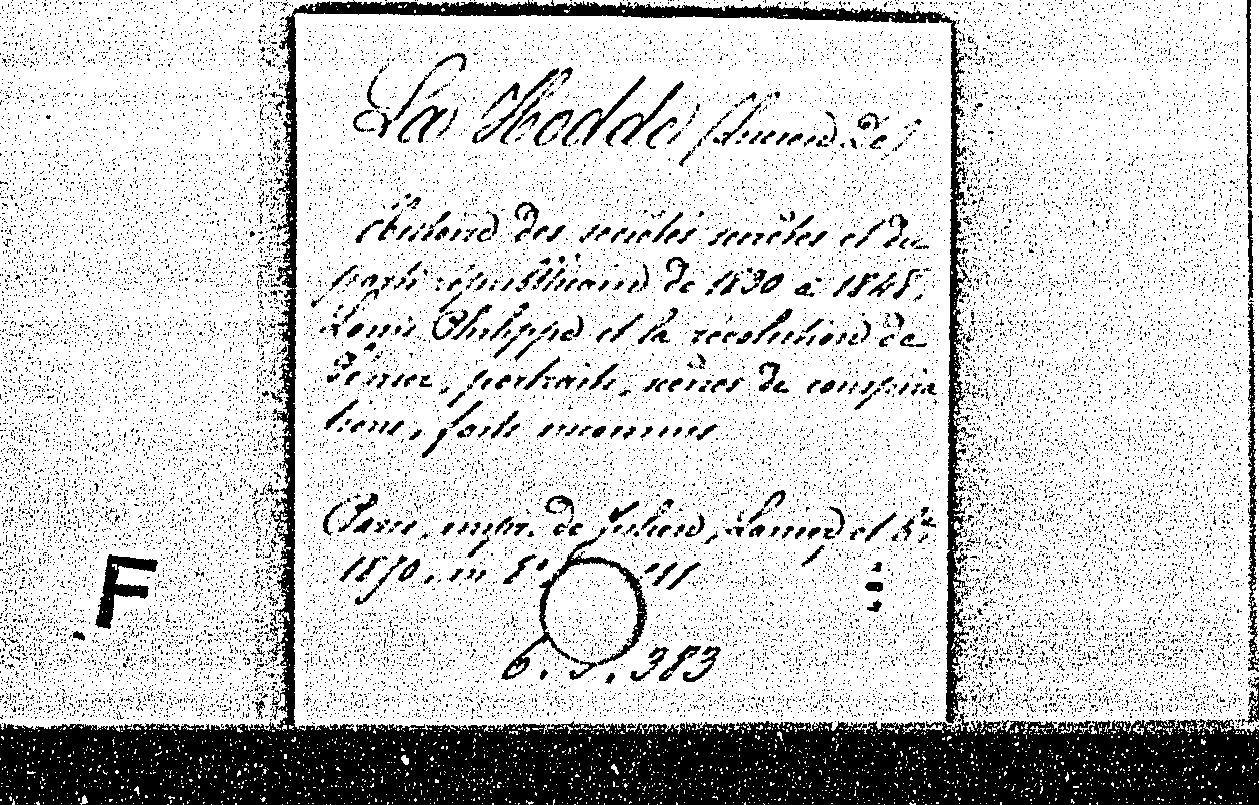 La Hodde (Lucien de)
Histoire des sociétés secrètes et du
parti républicain de 1830 à 1848.
Louis Philippe et la révolution de
Février, portraits, scènes de conspira
tions, faits inconnus
Paris, impr. de Julien, Lanier et Cie
1850. in 8°
6. 5. 383
F